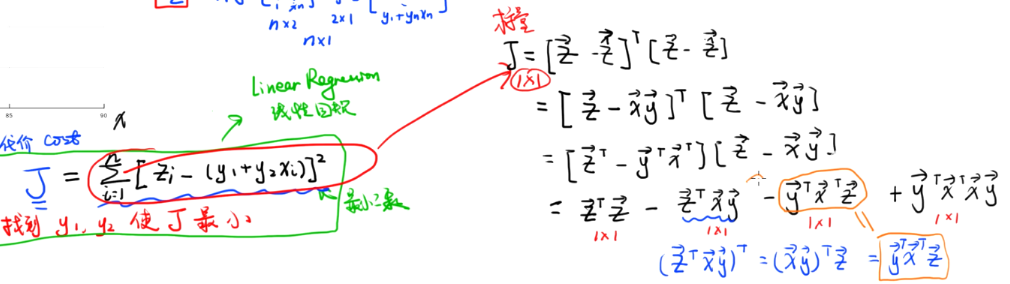 n×2 2×1 y₁+y₂xₙ
n×1
85 90 x
Linear Regression
线性回归
代价 cost
J = Σᵢ₌₁ⁿ [zᵢ - (y₁+y₂xᵢ)]²
最小二乘
找到 y₁, y₂ 使 J 最小
标量
J = [z⃗ - ẑ⃗]ᵀ [z⃗ - ẑ⃗]
1×1
= [z⃗ - x⃗y⃗]ᵀ [z⃗ - x⃗y⃗]
= [z⃗ᵀ - y⃗ᵀx⃗ᵀ] [z⃗ - x⃗y⃗]
= z⃗ᵀz⃗ - z⃗ᵀx⃗y⃗ - y⃗ᵀx⃗ᵀz⃗ + y⃗ᵀx⃗ᵀx⃗y⃗
1×1 1×1 1×1 1×1
(z⃗ᵀx⃗y⃗)ᵀ = (x⃗y⃗)ᵀz⃗ = y⃗ᵀx⃗ᵀz⃗